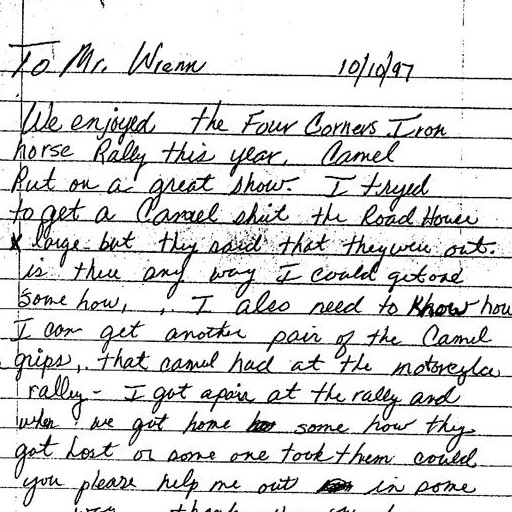 To Mr. Wienn 10/10/97
We enjoyed the Four Corners Iron
horse Rally this year. Camel
Put on a great show. I tryed
to get a Camel shirt the Road House
X large but they said that they were out.
is there any way I could get one
some how, . I also need to know how
I can get another pair of the Camel
grips, that camel had at the motorcycle
ralley - I got a pair at the rally and
when we got home some how they
got lost or some one took them could
you please help me out in some